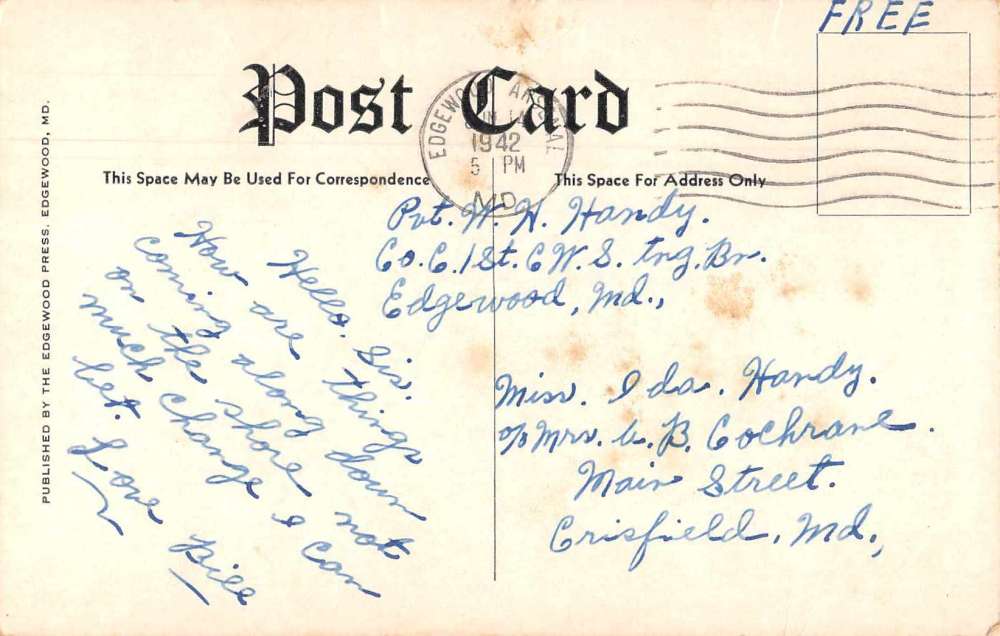 FREE
Post Card
EDGEWOOD ARSENAL
JUN 14
1942
5 PM
MD.
This Space May Be Used For Correspondence
This Space For Address Only
Pvt. W. H. Handy.
Co. C. 1st. C W. S. Tng. Bn.
Edgewood, Md.,
Hello. Sis.
How are things
coming along down
on the shore not
much change I can
bet. Love Bill
Miss. Ida. Handy.
c/o Mrs. W. B. Cochrane.
Main Street.
Crisfield, Md.,
PUBLISHED BY THE EDGEWOOD PRESS, EDGEWOOD, MD.